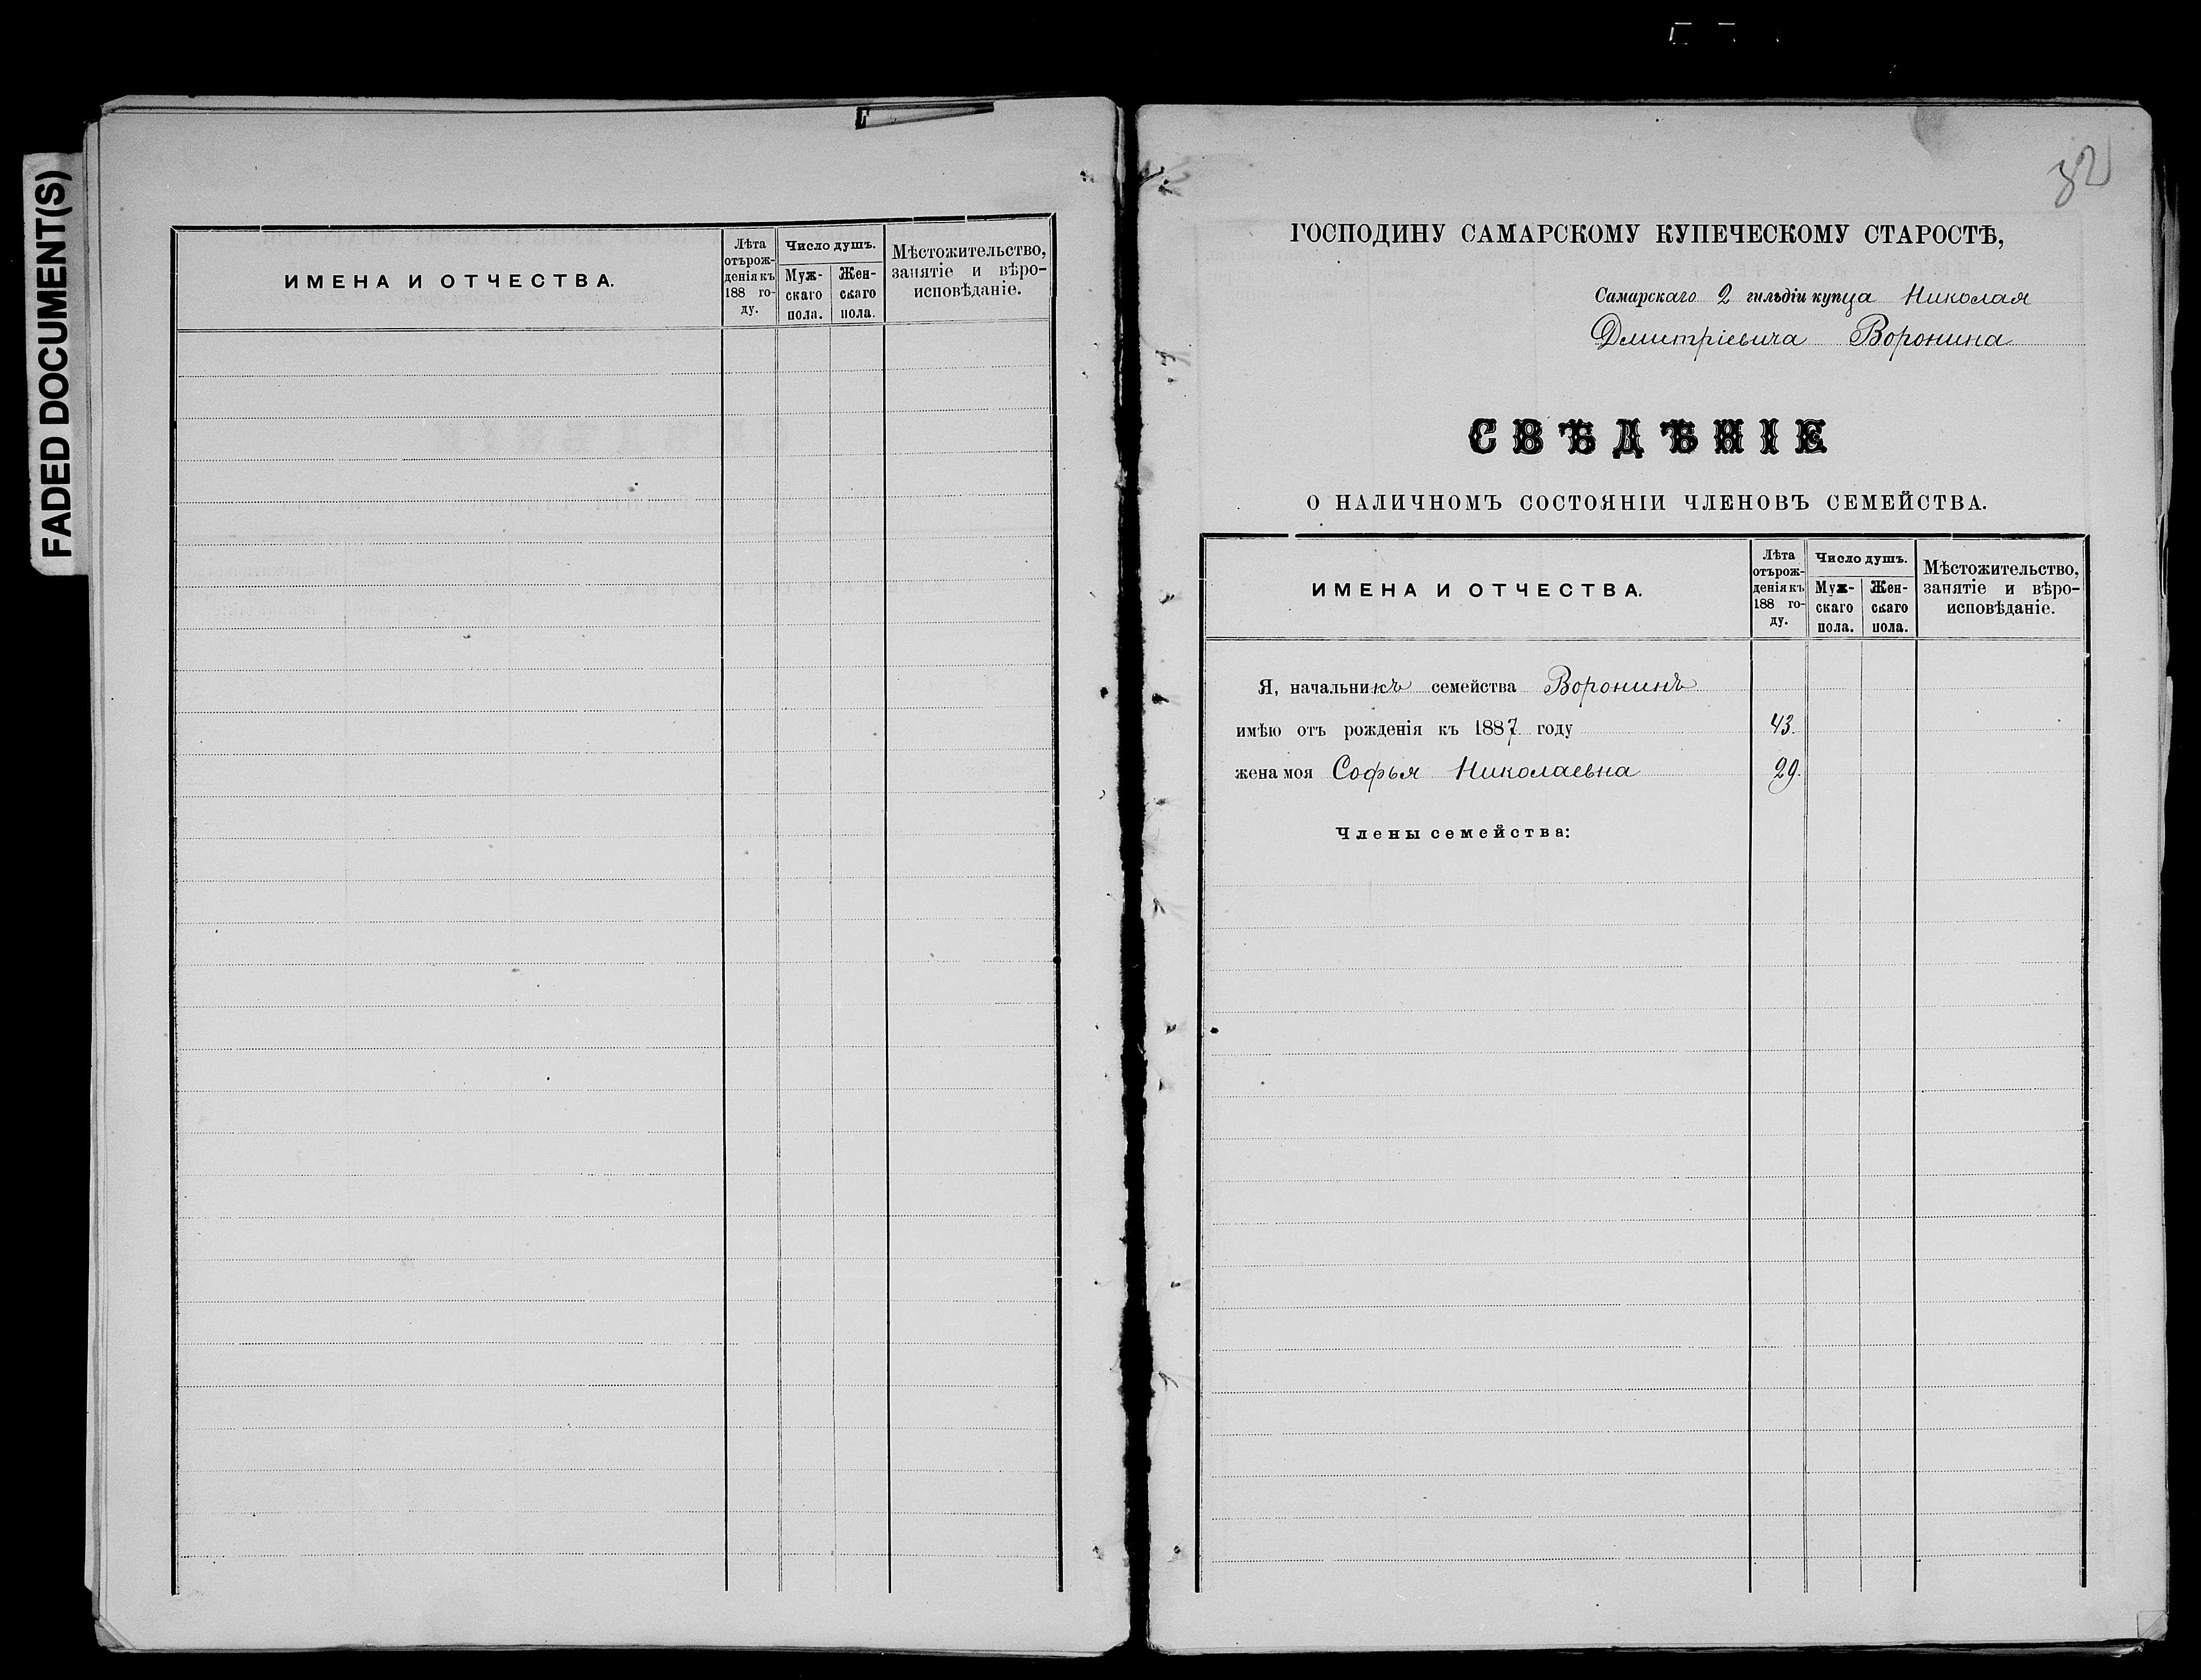 FADED DOCUMENT(S)
ИМЕНА И ОТЧЕСТВА.
Лѣта
отърож-
денія къ
188 го-
ду.
Число душъ.
Муж-
скаго
пола.
Жен-
скаго
пола.
Мѣстожительство,
занятіе и вѣро-
исповѣданіе.
32
ГОСПОДИНУ САМАРСКОМУ КУПЕЧЕСКОМУ СТАРОСТѢ,
Самарскаго 2 гильдіи купца Николая
Дмитріевича Воронина
СВѢДѢНІЕ
О НАЛИЧНОМЪ СОСТОЯНІИ ЧЛЕНОВЪ СЕМЕЙСТВА.
ИМЕНА И ОТЧЕСТВА.
Лѣта
отърож-
денія къ
188 го-
ду.
Число душъ.
Муж-
скаго
пола.
Жен-
скаго
пола.
Мѣстожительство,
занятіе и вѣро-
исповѣданіе.
Я, начальникъ семейства Воронинъ
имѣю отъ рожденія къ 1887 году 43.
жена моя Софья Николаевна 29.
Члены семейства: